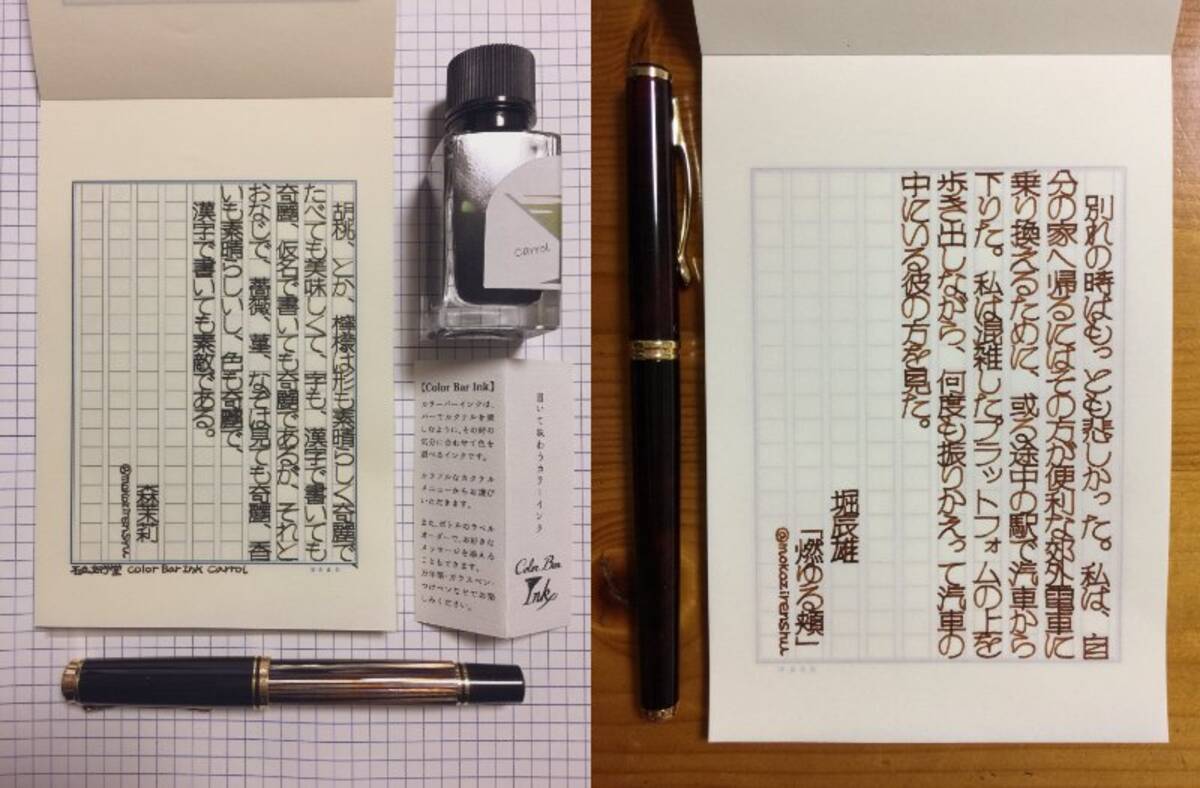 胡桃、とか、檸檬は形も素晴らしく奇麗で
たべても美味しくて、字も、漢字で書いても
奇麗、仮名で書いても奇麗であるが、それと
おなじで、薔薇、菫、なぞは見ても奇麗、香
いも素晴らしいし、色も奇麗で、
漢字で書いても素敵である。
森茉利
@mokoz.irenshu
Color Bar Ink Carrol
carrol
【Color Bar Ink】
カラーバーインクは、
バーでカクテルを楽
しむように、その時の
気分に合わせて色を
選べるインクです。
カラフルなカクテル
メニューからお選び
いただきます。
また、ボトルのラベル
オーダーで、お好きな
メッセージを添える
こともできます。
万年筆・ガラスペン・
つけペンなどでお楽
しみください。
書いて味わうカラーインク
Color Bar
Ink
別れの時はもっとも悲しかった。私は、自
分の家へ帰るにはその方が便利な郊外電車に
乗り換えるために、或る途中の駅で汽車から
下りた。私は混雑したプラットフォムの上を
歩き出しながら、何度も振りかえって汽車の
中にいる彼の方を見た。
堀辰雄
「燃ゆる頬」
@mokoz.irenshu